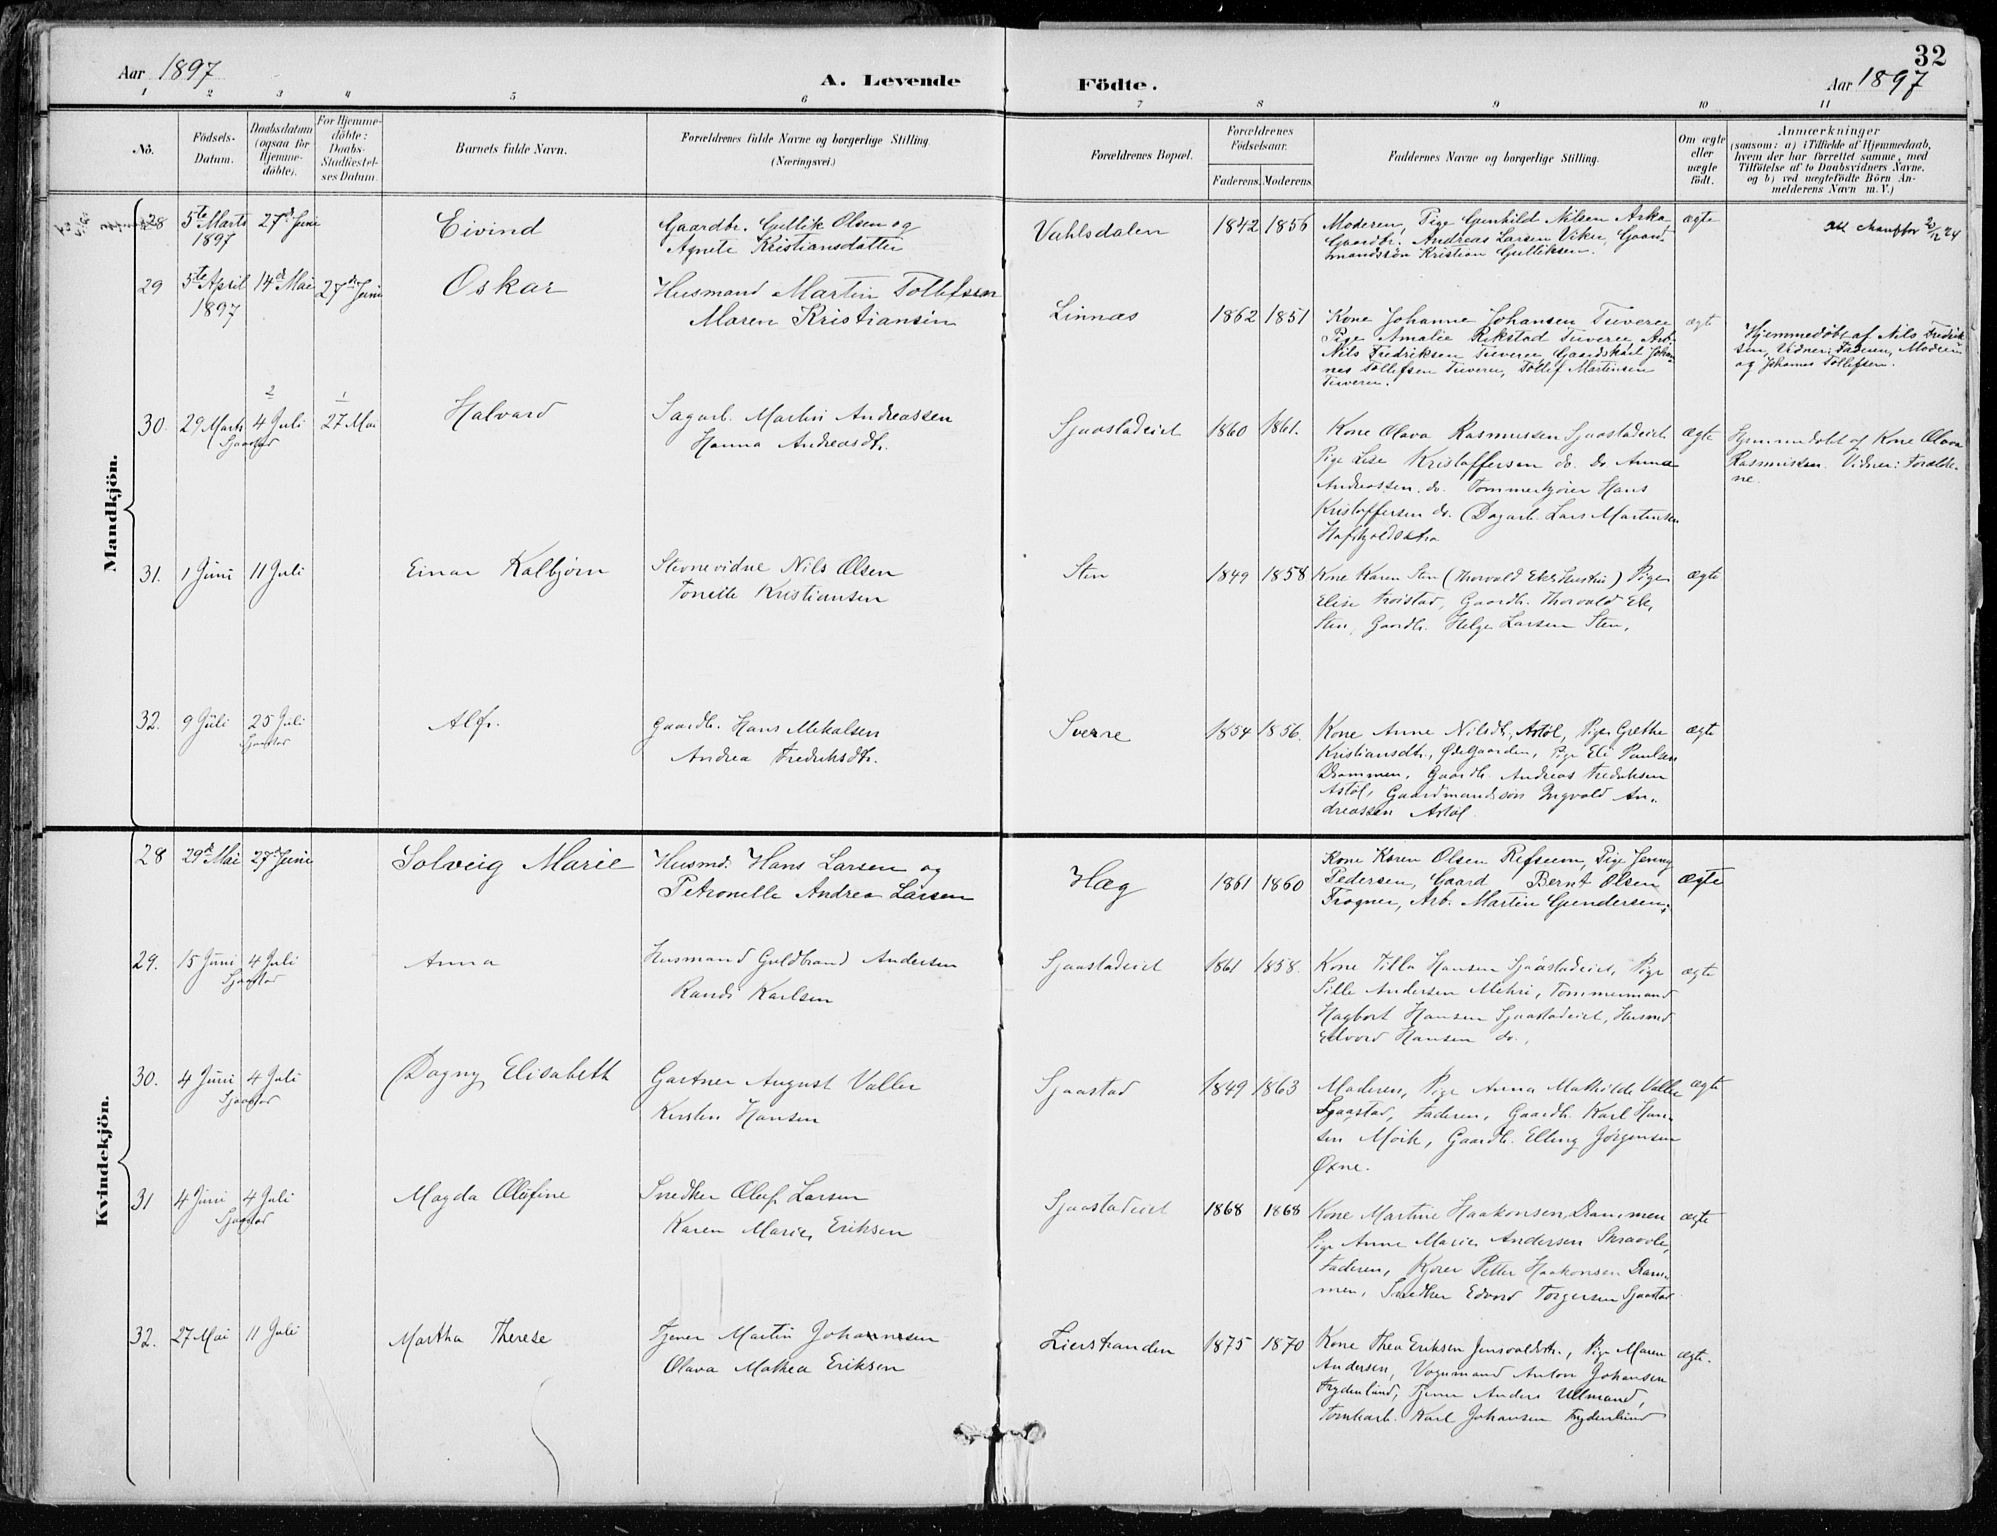 32
Aar 1897
A. Levende
Födte.
Aar 1897
1 2 3 4 5 6 7 8 9 10 11
No.
Födsels-
Datum.
Daabsdatum
(ogsaa for
Hjemme-
döbte).
For Hjemme-
döbte:
Daabs-
Stadfæstel-
ses Datum.
Barnets fulde Navn.
Forældrenes fulde Navne og borgerlige Stilling
(Næringsvei.)
Forældrenes Bopæl.
Forældrenes
Födselsaar.
Faderens. Moderens.
Faddernes Navne og borgerlige Stilling.
Om ægte
eller
uægte
födt.
Anmærkninger
(saasom: a) i Tilfælde af Hjemmedaab,
hvem der har forrettet samme, med
Tilföielse af to Daabsvidners Navne.
og b) ved uægtefödte Börn An-
melderens Navn m. V.)
Mandkjön.
28 5te Marts 27d Juni
1897
Eivind
Gaardbr. Gullik Olsen og
Agnete Kristiansdatter
Vahlsdalen
1842 1856
Moderen, Pige Gunhild Nilsen Aska
Gaardbr. Andreas Larsen Viker, Gaard-
mandssøn Kristian Gulliksen.
ægte
29 5te April 14d Mai 27d Juni
1897
Oskar
Husmand Martin Tollefsen
Maren Kristiansen
Linnæs
1862 1851
Kone Johanne Johansen Tuverer
Pige Amalie Rikstad Tuverer Arb.
Nils Fredriksen Tuverer Gaardskarl Johan-
nes Tollefsen Tuverer, Tollef Martinsen
Tuverer.
ægte
Hjemmedøbt af Nils Fredrik-
sen, Vidner: Faderen, Moderen
og Johannes Tollefsen.
30. 29 Marts 4 Juli 27 Mai
Sjaastad
Halvard
Sagarb. Martin Andreassen
Hanna Andreasdt.
Sjaastadeiet
1860 1861.
Kone Olava Rasmussen Sjaastadeiet
Pige Lise Kristoffersen do. Do Anna
Andreassen do. Tømmerkjører Hans
Kristoffersen do. Dagarb. Lars Martinsen
ægte
Hjemmedøbt af Kone Olava
Rasmussen. Vidner: Forældre-
ne.
31. 1 Juni 11 Juli
Einar Kolbjørn
Stevnevidne Nils Olsen
Tonette Kristiansen
Sten
1849 1858
Kone Karen Sten (Thorvald Eks Hustru) Pige
Elise Troistad, Gaardb. Thorvald Ek,
Sten, Gaardb. Helge Larsen Sten,
ægte
32. 9 Juli 25 Juli
Sjaastad
Alf.
Gaardb. Hans Mikalsen
Andrea Fredriksdt.
Sverne
1854 1856.
Kone Anne Nilsdt. Astøl, Pige Grethe
Kristiansdt., Ødegaarden, Pige Eli Paulsen
Drammen, Gaardb. Andreas Fredriksen
Astøl, Gaardmandssøn Ingvald An-
dreassen Astøl.
ægte
Kvindekjön.
28 29d Mai 27d Juni
Solveig Marie
Husmd. Hans Larsen og
Petronelle Andrea Larsen
Hæg
1861 1860
Kone Karen Olsen Refseum, Pige Jenny
Pedersen, Gaard Bernt Olsen
Frogner, Arb. Martin Gundersen,
ægte
29. 15 Juni 4 Juli
Sjaastad
Anna
Husmand Guldbrand Andersen
Randi Karlsen
Sjaastadeiet
1861 1858.
Kone Tilla Hansen Sjaastadeiet, Pige
Sille Andersen Mehri, Tømmermand
Hagbart Hansen Sjaastadeiet, Husmd.
Edvard Hansen do.
ægte
30. 4 Juni 4 Juli
Sjaastad
Dagny Elisabeth
Gartner August Valler
Kirsten Hansen
Sjaastad
1849 1863
Moderen, Pige Anna Mathilde Valler
Sjaastad, Faderen, Gaardb. Karl Han-
sen Mørk, Gaardb. Elling Jørgensen
Øxne.
ægte
31 4 Juni 4 Juli
Sjaastad
Magda Olufine
Snedker Oluf Larsen
Karen Marie Eriksen
Sjaastadeiet
1868 1868
Kone Martine Haakonsen, Drammen
Pige Anne Marie Andersen Skraavle,
Faderen, Kjører Petter Haakonsen Dram-
men, Snedker Edvard Torgersen Sjaastad
ægte
32. 27 Mai 11 Juli
Martha Therese
Tjener Martin Johannesen
Olava Mathea Eriksen
Lierstranden
1875 1870
Kone Thea Eriksen Jensvoldstr., Pige Maren
Andersen, Vognmand Anton Johansen
Frydenlund, Tjener Anders Ullmand,
Tomtearb. Karl Johansen Frydenlund
ægte.